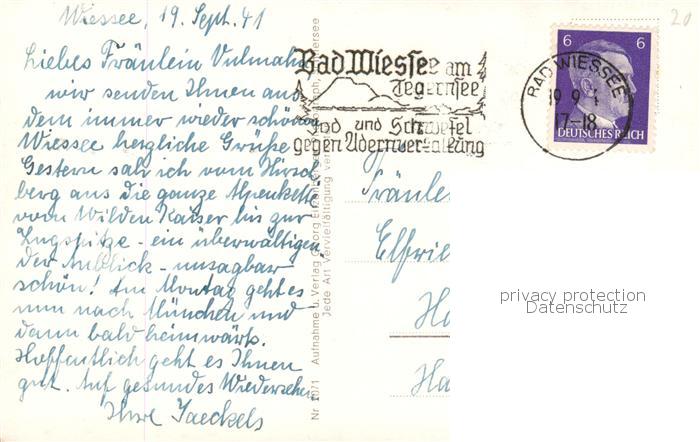 Wiessee, 19. Sept. 41
Liebes Fräulein Vulmahn,
wir senden Ihnen aus
dem immer wieder schönen
Wiessee herzliche Grüße.
Gestern sah ich vom Hirsch
berg aus die ganze Alpenkette
vom Wilden Kaiser bis zur
Zugspitze - ein überwältigen
der Anblick - unsagbar
schön! Am Montag geht es
nun nach München und
dann bald heimwärts.
Hoffentlich geht es Ihnen
gut. Auf gesundes Wiedersehen
Ihre Jaeckels
Nr. 1071 Aufnahme u. Verlag Georg
Jede Art Vervielfältigung
Bad Wiessee am
Tegernsee
Jod und Schwefel
gegen Adernverkalkung
BAD WIESSEE
19 9 4
17-18
6 6
DEUTSCHES REICH
20
Fräulein
Elfrie
Ha
Ha
privacy protection
Datenschutz